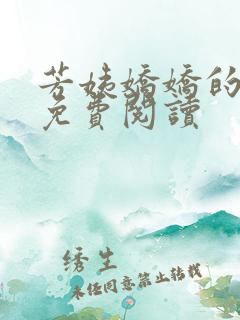 芳姨嬌嬌的
免費閱讀
绣生
未经同意禁止转载